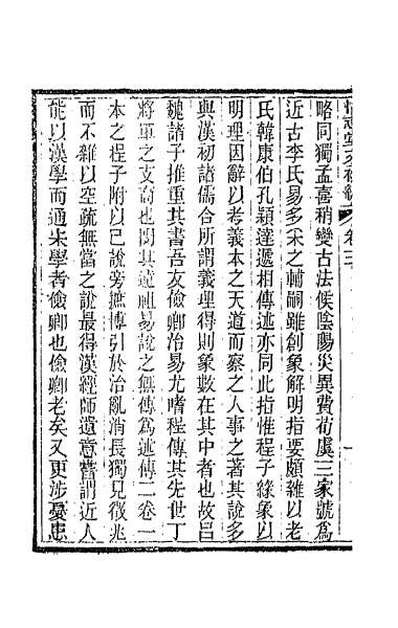 卷三
略同獨孟喜稍變古法候陰陽災異費荀虞三家號爲
近古李氏易多宋之輔嗣雖創象解明指要頗雜以老
氏韓康伯孔穎達遞相傳述亦同此指惟程子緣象以
明理因辭以考義本之天道而察之人事之著其說多
與漢初諸儒合所謂義理得則象數在其中者也故呂
魏諸子推重其書吾友儉卿治易尤嗜程傳其先世丁
將軍之支裔也閔其遠祖易說之無傳爲述傳二卷一
本之程子附以己說旁摭博引於治亂消長獨見徵兆
而不雜以空疏無當之說最得漢經師遺意嘗謂近人
能以漢學而通宋學者儉卿也儉卿老矣又更涉憂患